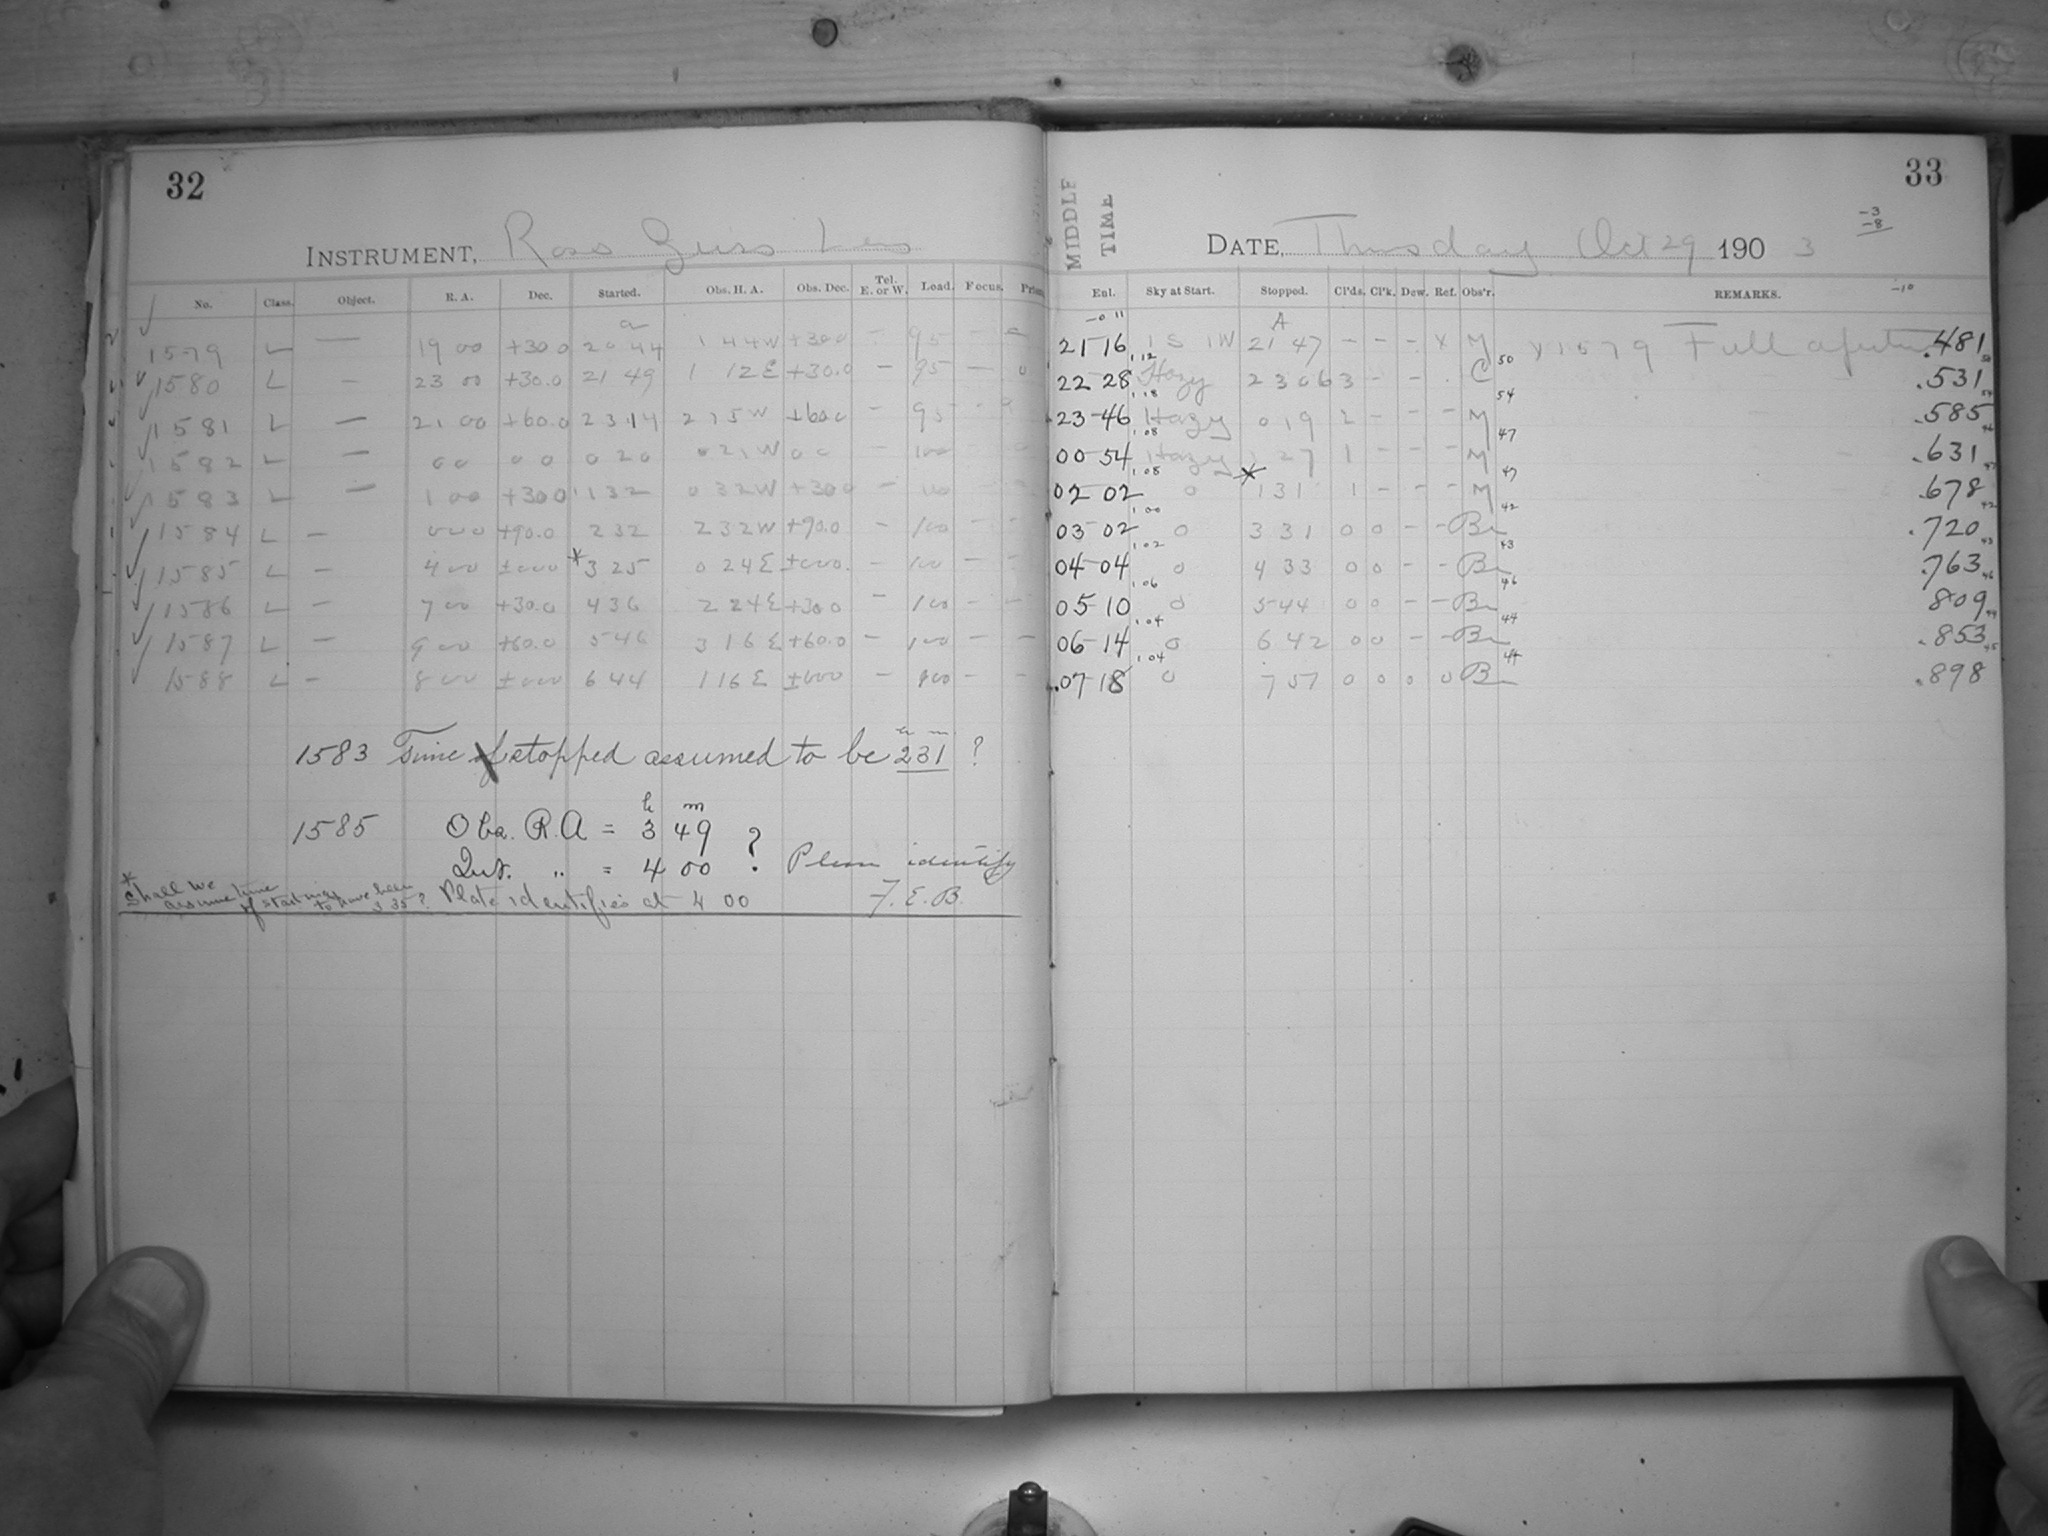 32
INSTRUMENT, Ross Zeiss Lens
No. Class. Object. R. A. Dec. Started. Obs. H. A. Obs. Dec. Tel. E. or W. Load. Focus. Prism
1579 L — 19 00 +30 0 20 44 1 44 W +30 0 – 95 –
1580 L — 23 00 +30.0 21 49 1 12 E +30.0 – 95 – 0
1581 L — 21 00 +60.0 23 14 2 15 W +60 0 – 95 –
1582 L — 0 0 0 0 0 20 0 21 W 0 0 – 100
1583 L — 1 00 +30 0 1 32 0 32 W +30 0 – 100
1584 L – 0 0 0 +90.0 2 32 2 32 W +90.0 – 100 – –
1585 L – 4 00 ±000 *3 25 0 24 E ±000. – 100 – –
1586 L – 7 00 +30.0 4 36 2 24 E +30 0 – 100 – –
1587 L – 9 00 +60.0 5 46 3 16 E +60.0 – 100 – –
1588 L – 8 00 ±000 6 44 1 16 E ±000 – 100 – –
1583 Time of stopped assumed to be 2h 31m ?
1585 Obs. R.A = 3h 49m
Int. " = 4 00 ? Please identify
F. E. B.
* Shall we assume time of starting to have been 3 35 ? Plate identifies at 4 00
33
MIDDLE TIME
DATE, Thursday Oct 29 1903
-3
-8
-10
Enl. Sky at Start. Stopped. Cl'ds. Cl'k. Dew. Ref. Obs'r. REMARKS.
-0 11
21 16 1 S 1W 21 47 – – – x M x 1579 Full aperture .481
1 12 50
22 28 Hazy 23 06 3 – – . C .531
1 18 54
23-46 Hazy 0 19 2 – – – M .585
1 08 47
00-54 Hazy 1 27 1 – – – M .631
1 08 * 47
02 02 0 1 31 1 – – – M .678
1 00 42
03-02 0 3 31 0 0 – – Br .720
1 02 43
04-04 0 4 33 0 0 – – Br .763
1 06 46
05-10 0 5 44 0 0 – – Br 809
1 04 44
06-14 0 6 42 0 0 – – Br .853
1 04 44
.07-18 0 7 57 0 0 0 0 Br .898